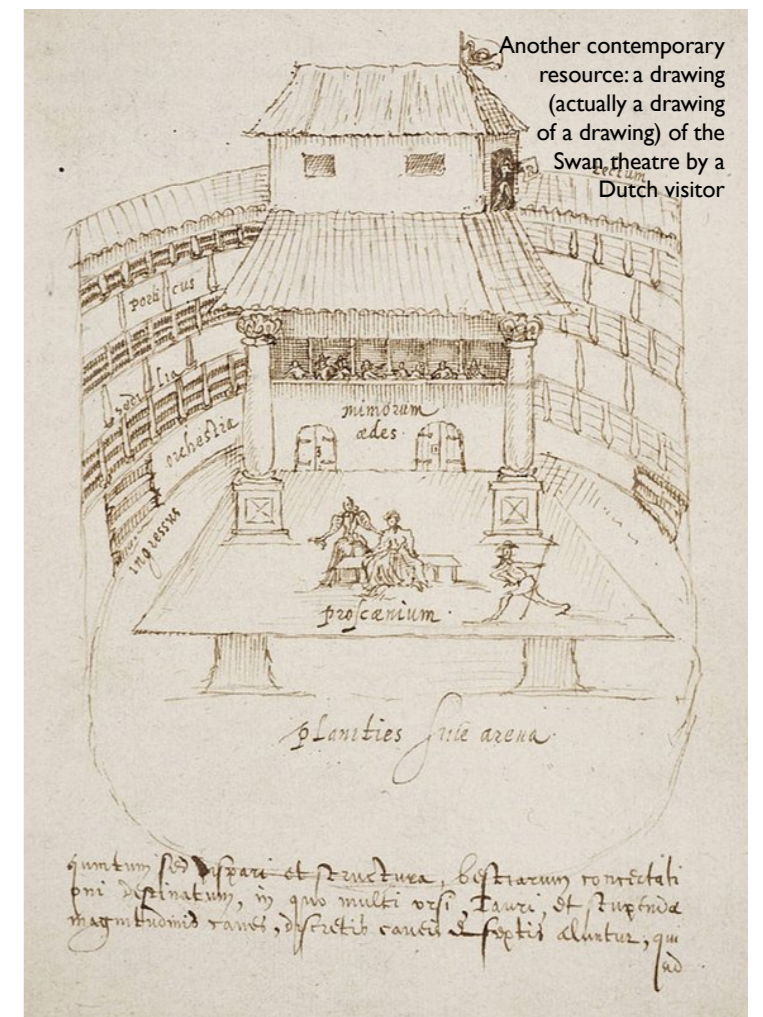 Another contemporary
resource: a drawing
(actually a drawing
of a drawing) of the
Swan theatre by a
Dutch visitor
tectum
porticus
sedilia
orchestra
ingressus
mimorum
ædes.
proscænium.
planities sive arena.
quintum sed dispari et structura, bestiarum concertati
oni destinatum, in quo multi ursi, Tauri, et stupendæ
magnitudinis canes, discretis caueis & septis aluntur, qui
ad